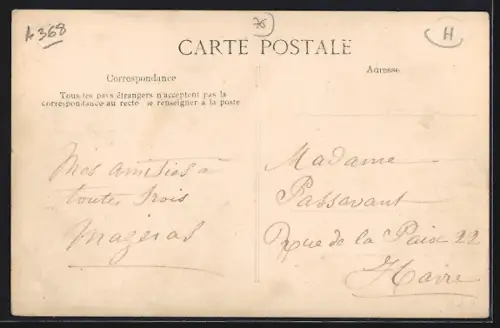 A 368
76
H
CARTE POSTALE
Correspondance
Tous les pays étrangers n'acceptent pas la
correspondance au recto (se renseigner à la poste
Mes amitiés à
toutes trois
Mazeras
Adresse
Madame
Passavant
Rue de la Paix 22
Havre